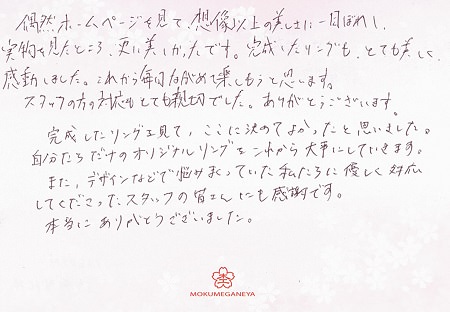 偶然ホームページを見て、想像以上の美しさに一目ぼれし、
実物を見たところ、更に美しかったです。完成いたリングも、とても美しく、
感動しました。これから毎日ながめて楽しもうと思います。
スタッフの方の対応もとても親切でした。ありがとうございます。
完成したリングを見て、ここに決めてよかったと思いました。
自分たちだけのオリジナルリングをこれから大事にしていきます。
また、デザインなどで悩みまくっていた私たちに優しく対応
してくださったスタッフの皆さんにも感謝です。
本当にありがとうございました。
MOKUMEGANEYA